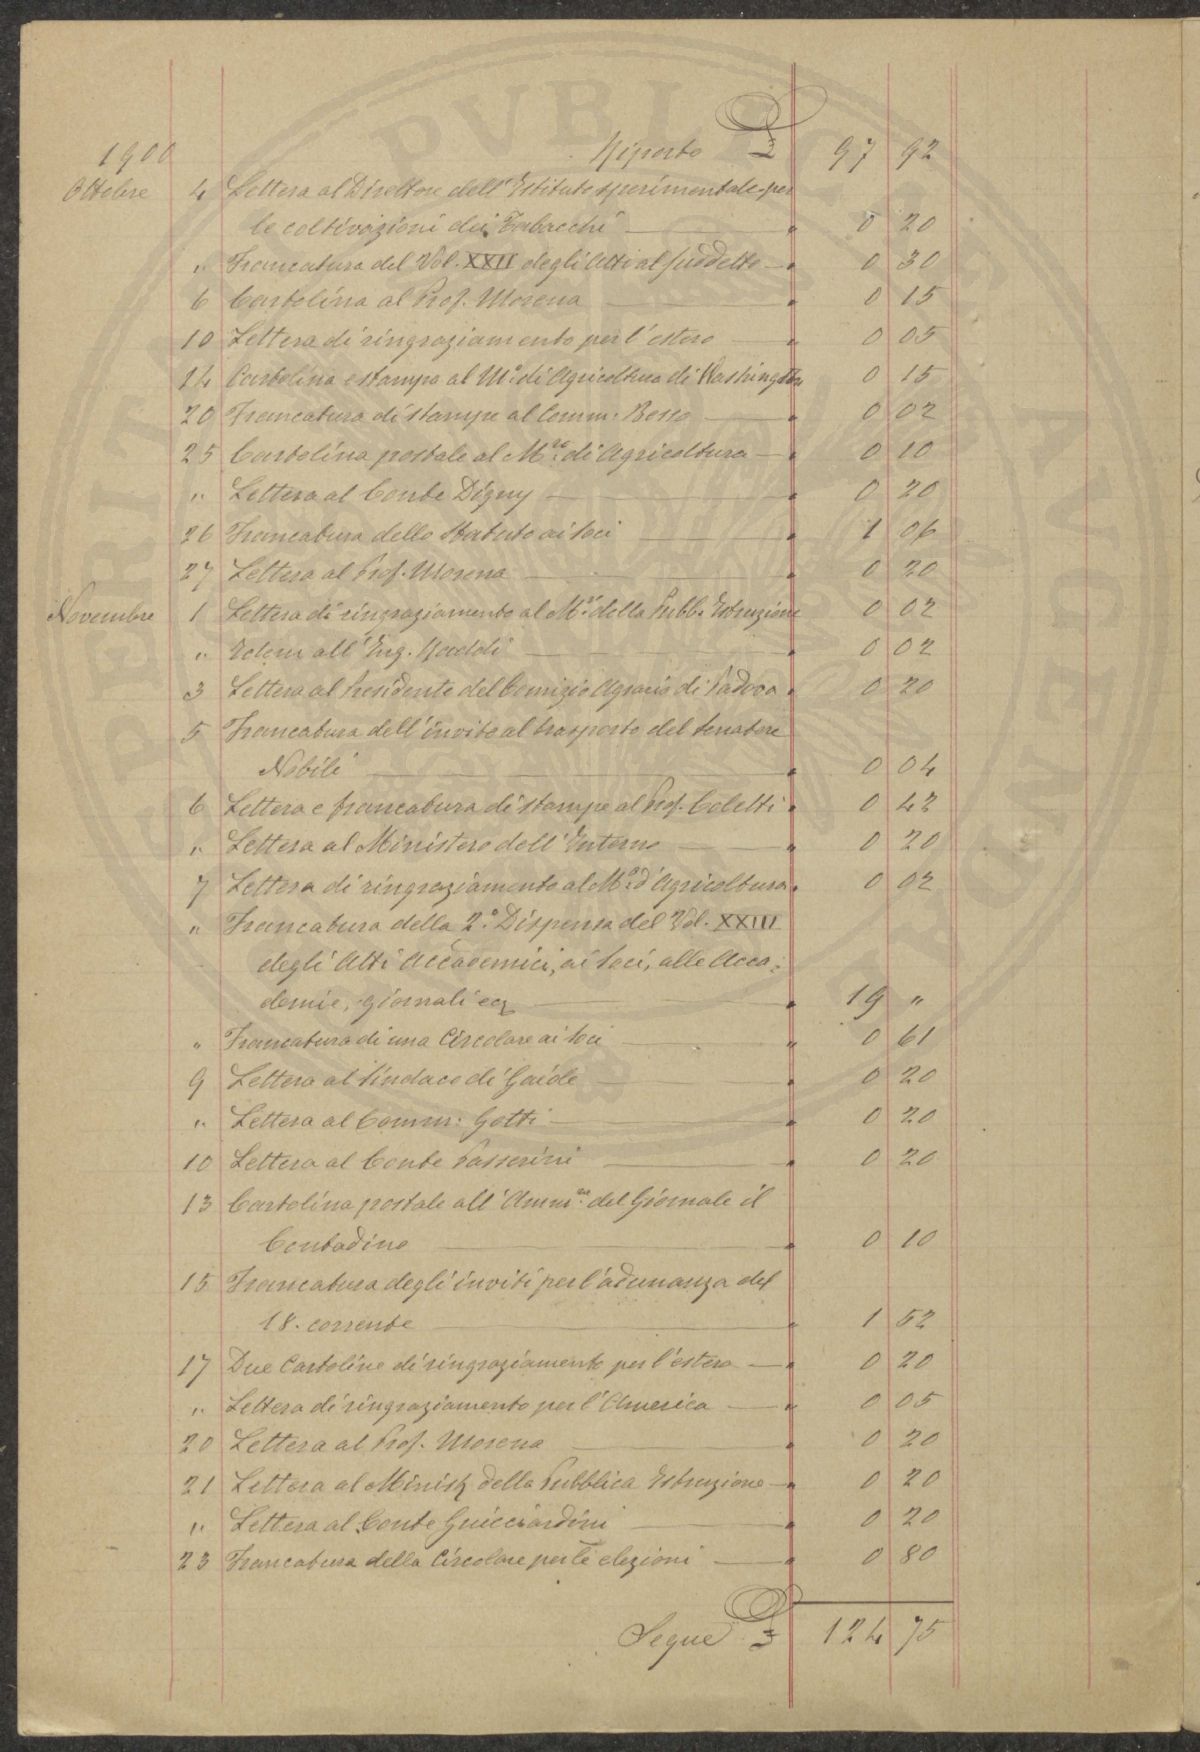 1900 Riporto £ 97 92
Ottobre 4 Lettera al Direttore dell'Istituto sperimentale per
le coltivazioni dei Tabacchi — " 0 20
" Francatura del Vol. XXII degli Atti al suddetto — " 0 30
6 Cartolina al Prof. Morena — " 0 15
10 Lettera di ringraziamento per l'estero — " 0 05
14 Cartolina e stampa al M.º di Agricoltura di Washington 0 15
20 Francatura di stampe al Comm: Bosso — " 0 02
25 Cartolina postale al M.ro di Agricoltura — " 0 10
" Lettera al Conte Digny — " 0 20
26 Francatura dello Statuto ai Soci — " 1 06
27 Lettera al Prof. Morena — " 0 20
Novembre 1 Lettera di ringraziamento al M.ro della Pubb. Istruzione 0 02
" Idem all'Ing. Raddi — " 0 02
3 Lettera al Presidente del Comizio Agrario di Padova " 0 20
5 Francatura dell'invito al trasporto del Senatore
Nobili — " 0 04
6 Lettera e francatura di stampe al Prof. Coletti " 0 42
" Lettera al Ministero dell'Interno — " 0 20
7 Lettera di ringraziamento al M.º d'Agricoltura " 0 02
" Francatura della 2.ª Dispensa del Vol. XXIII
degli Atti Accademici, ai Soci, alle Acca-
demie, giornali ec — " 19 "
" Francatura di una Circolare ai Soci — " 0 61
9 Lettera al Sindaco di Gaiole — " 0 20
" Lettera al Comm: Gotti — " 0 20
10 Lettera al Conte Passerini — " 0 20
13 Cartolina postale all'Amm.ne del Giornale il
Contadino — " 0 10
15 Francatura degli inviti per l'adunanza del
18. corrente — " 1 52
17 Due Cartoline di ringraziamento per l'estero — " 0 20
" Lettera di ringraziamento per l'America — " 0 05
20 Lettera al Prof. Morena — " 0 20
21 Lettera al Minist. della Pubblica Istruzione — " 0 20
" Lettera al Conte Guicciardini — " 0 20
23 Francatura della Circolare per le elezioni — " 0 80
Segue £ 124 75